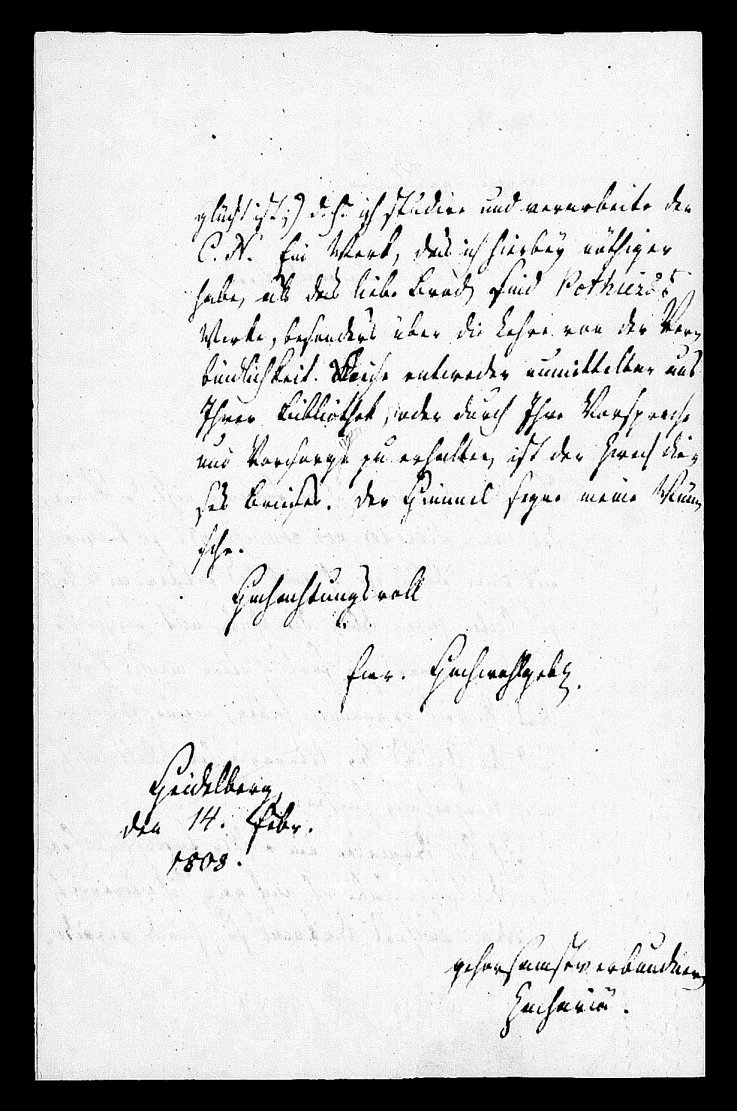 glückt ist;) d. h. ich studire und verarbeite den
C. N. Ein Werk, das ich hierbey nöthiger
habe, als das liebe Brod, sind Pothiers
Werke, besonders über die Lehre von der Ver¬
bindlichkeit. Solche entweder unmittelbar aus
Ihrer Bibliothek, oder durch Ihre Vorsprache
und Vorsorge zu erhalten, ist der Zweck die¬
ses Briefes. Der Himmel segne meine Wün¬
sche.
Hochachtungsvoll
Ew. Hochwohlgeb.
Heidelberg,
den 14. Febr.
1808.
gehorsamstverbundner
Zachariä.